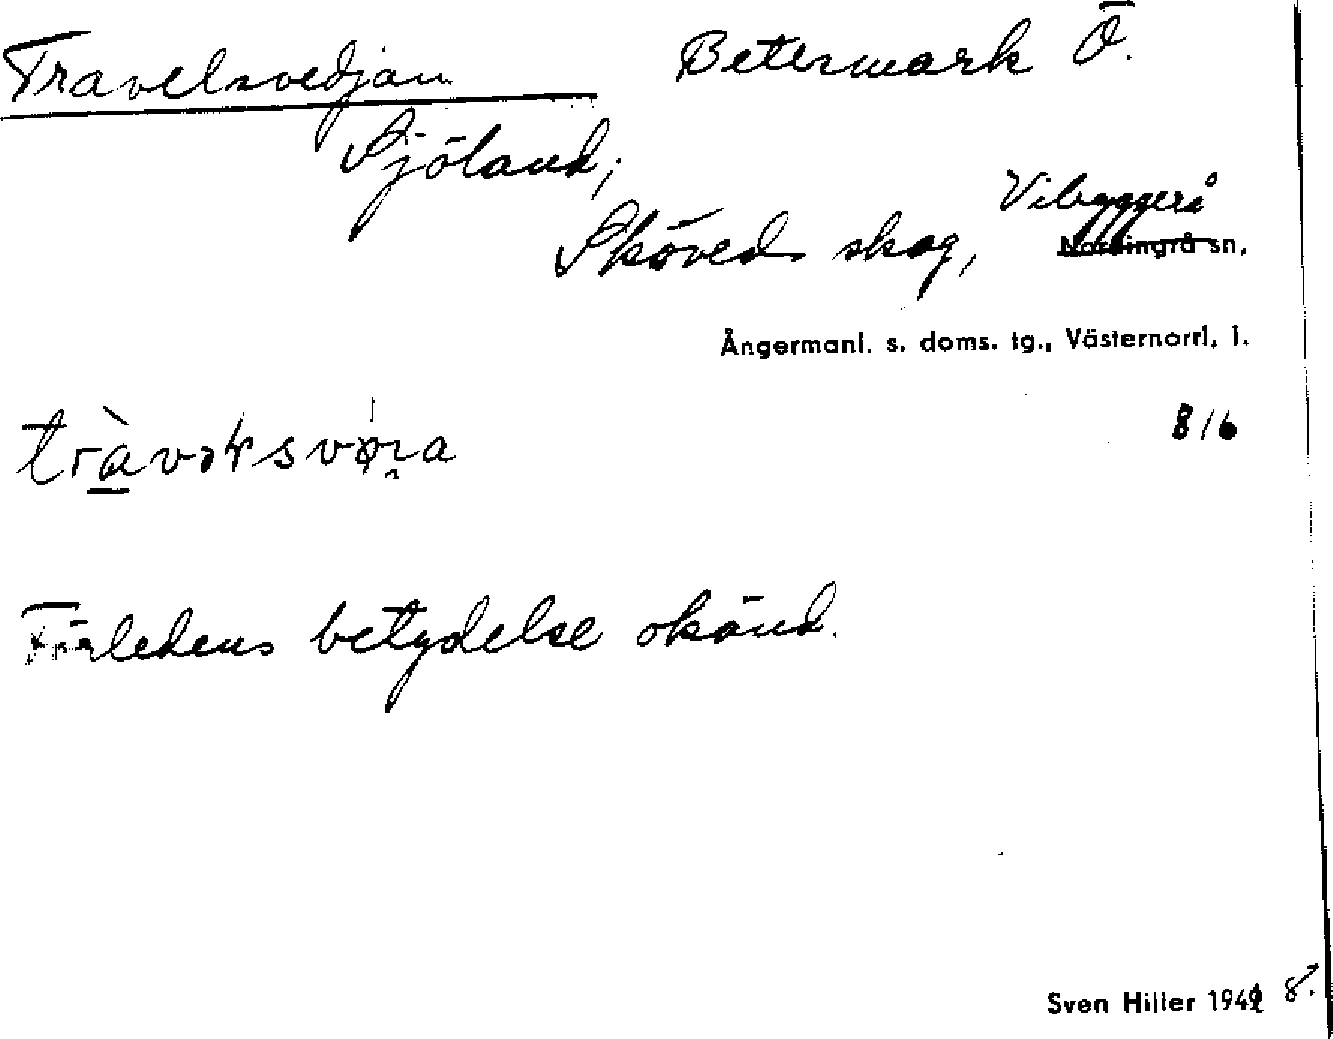 Travelsvedjan Betesmark Ö.
Sjöland,
Sköveds skog, Vibyggerå
Nordingrå sn,
Ångermanl. s. doms. tg., Västernorrl. l.
8/6
Förledens betydelse okänd.
Sven Hiller 194 8.